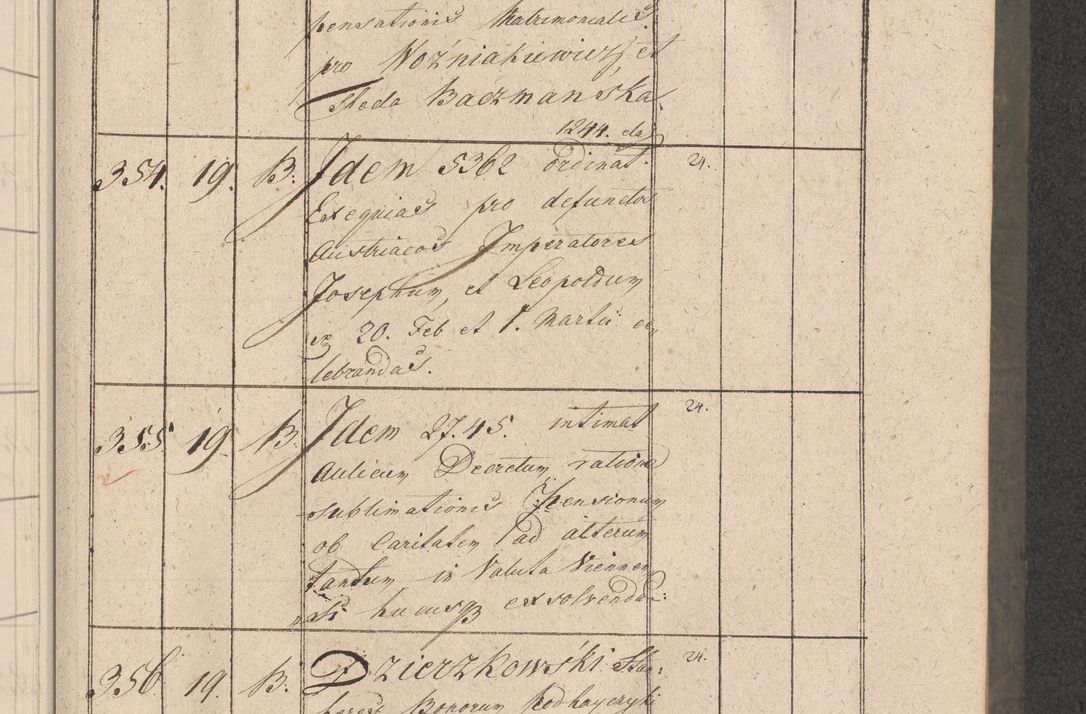 pensationis Matrimonialis
pro Woźniakiewicz et
Theda Baczmańska
1244. de
354. 19. B. Idem 5362 ordinat 24.
Exequias pro defunctos
Austriacos Imperatores
Josephum, et Leopoldum
20. Feb et 1. Martii ce
lebrandas.
355 19. B. Idem 2745. intimat 24.
Aulicum Decretum ratione
sublimationis Pensionum
ob Caritatem ad alterum
tantum in Valuta Viennen
si hucusq exsolvendar:
356 19. B. Dzierzkowski 24.
Bonorum Podhayczyki